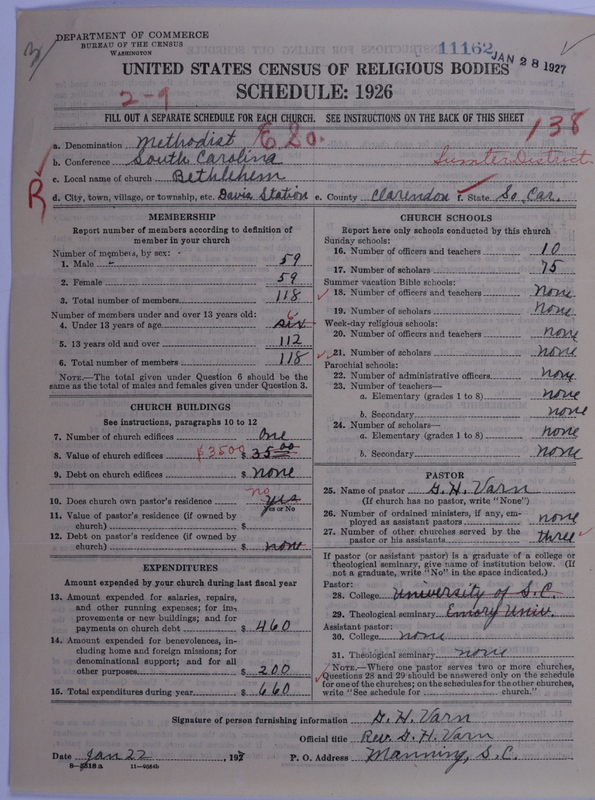 DEPARTMENT OF COMMERCE
BUREAU OF THE CENSUS
WASHINGTON
11162
JAN 28 1927
UNITED STATES CENSUS OF RELIGIOUS BODIES
SCHEDULE: 1926
2-9
FILL OUT A SEPARATE SCHEDULE FOR EACH CHURCH. SEE INSTRUCTIONS ON THE BACK OF THIS SHEET
138
a. Denomination Methodist E So.
b. Conference South Carolina Sumter District
c. Local name of church Bethlehem
R
d. City, town, village, or township, etc. Davis Station e. County Clarendon f. State So. Car.
MEMBERSHIP
Report number of members according to definition of
member in your church
Number of members, by sex:
1. Male 59
2. Female 59
3. Total number of members 118
Number of members under and over 13 years old:
4. Under 13 years of age six 6
5. 13 years old and over 112
6. Total number of members 118
NOTE.—The total given under Question 6 should be the
same as the total of males and females given under Question 3.
CHURCH BUILDINGS
See instructions, paragraphs 10 to 12
7. Number of church edifices one
8. Value of church edifices $3500 $ 35 00
9. Debt on church edifices $ none
10. Does church own pastor's residence no yes
Yes or No
11. Value of pastor's residence (if owned by
church) $
12. Debt on pastor's residence (if owned by
church) $ none
EXPENDITURES
Amount expended by your church during last fiscal year
13. Amount expended for salaries, repairs,
and other running expenses; for im-
provements or new buildings; and for
payments on church debt $ 460
14. Amount expended for benevolences, in-
cluding home and foreign missions; for
denominational support; and for all
other purposes $ 200
15. Total expenditures during year $ 660
CHURCH SCHOOLS
Report here only schools conducted by this church
Sunday schools:
16. Number of officers and teachers 10
17. Number of scholars 75
Summer vacation Bible schools:
18. Number of officers and teachers none
19. Number of scholars none
Week-day religious schools:
20. Number of officers and teachers none
21. Number of scholars none
Parochial schools:
22. Number of administrative officers none
23. Number of teachers—
a. Elementary (grades 1 to 8) none
b. Secondary none
24. Number of scholars—
a. Elementary (grades 1 to 8) none
b. Secondary none
PASTOR
25. Name of pastor G. H. Varn
(If church has no pastor, write "None")
26. Number of ordained ministers, if any, em-
ployed as assistant pastors none
27. Number of other churches served by the
pastor or his assistants three
If pastor (or assistant pastor) is a graduate of a college or
theological seminary, give name of institution below. (If
not a graduate, write "No" in the space indicated.)
Pastor:
28. College University of S. C.
29. Theological seminary Emory Univ.
Assistant pastor:
30. College none
31. Theological seminary none
NOTE.—Where one pastor serves two or more churches,
Questions 28 and 29 should be answered only on the schedule
for one of the churches; on the schedules for the other churches,
write "See schedule for church."
Signature of person furnishing information G. H. Varn
Official title Rev. G. H. Varn
Date Jan 22, 1927 P. O. Address Manning, S.C.